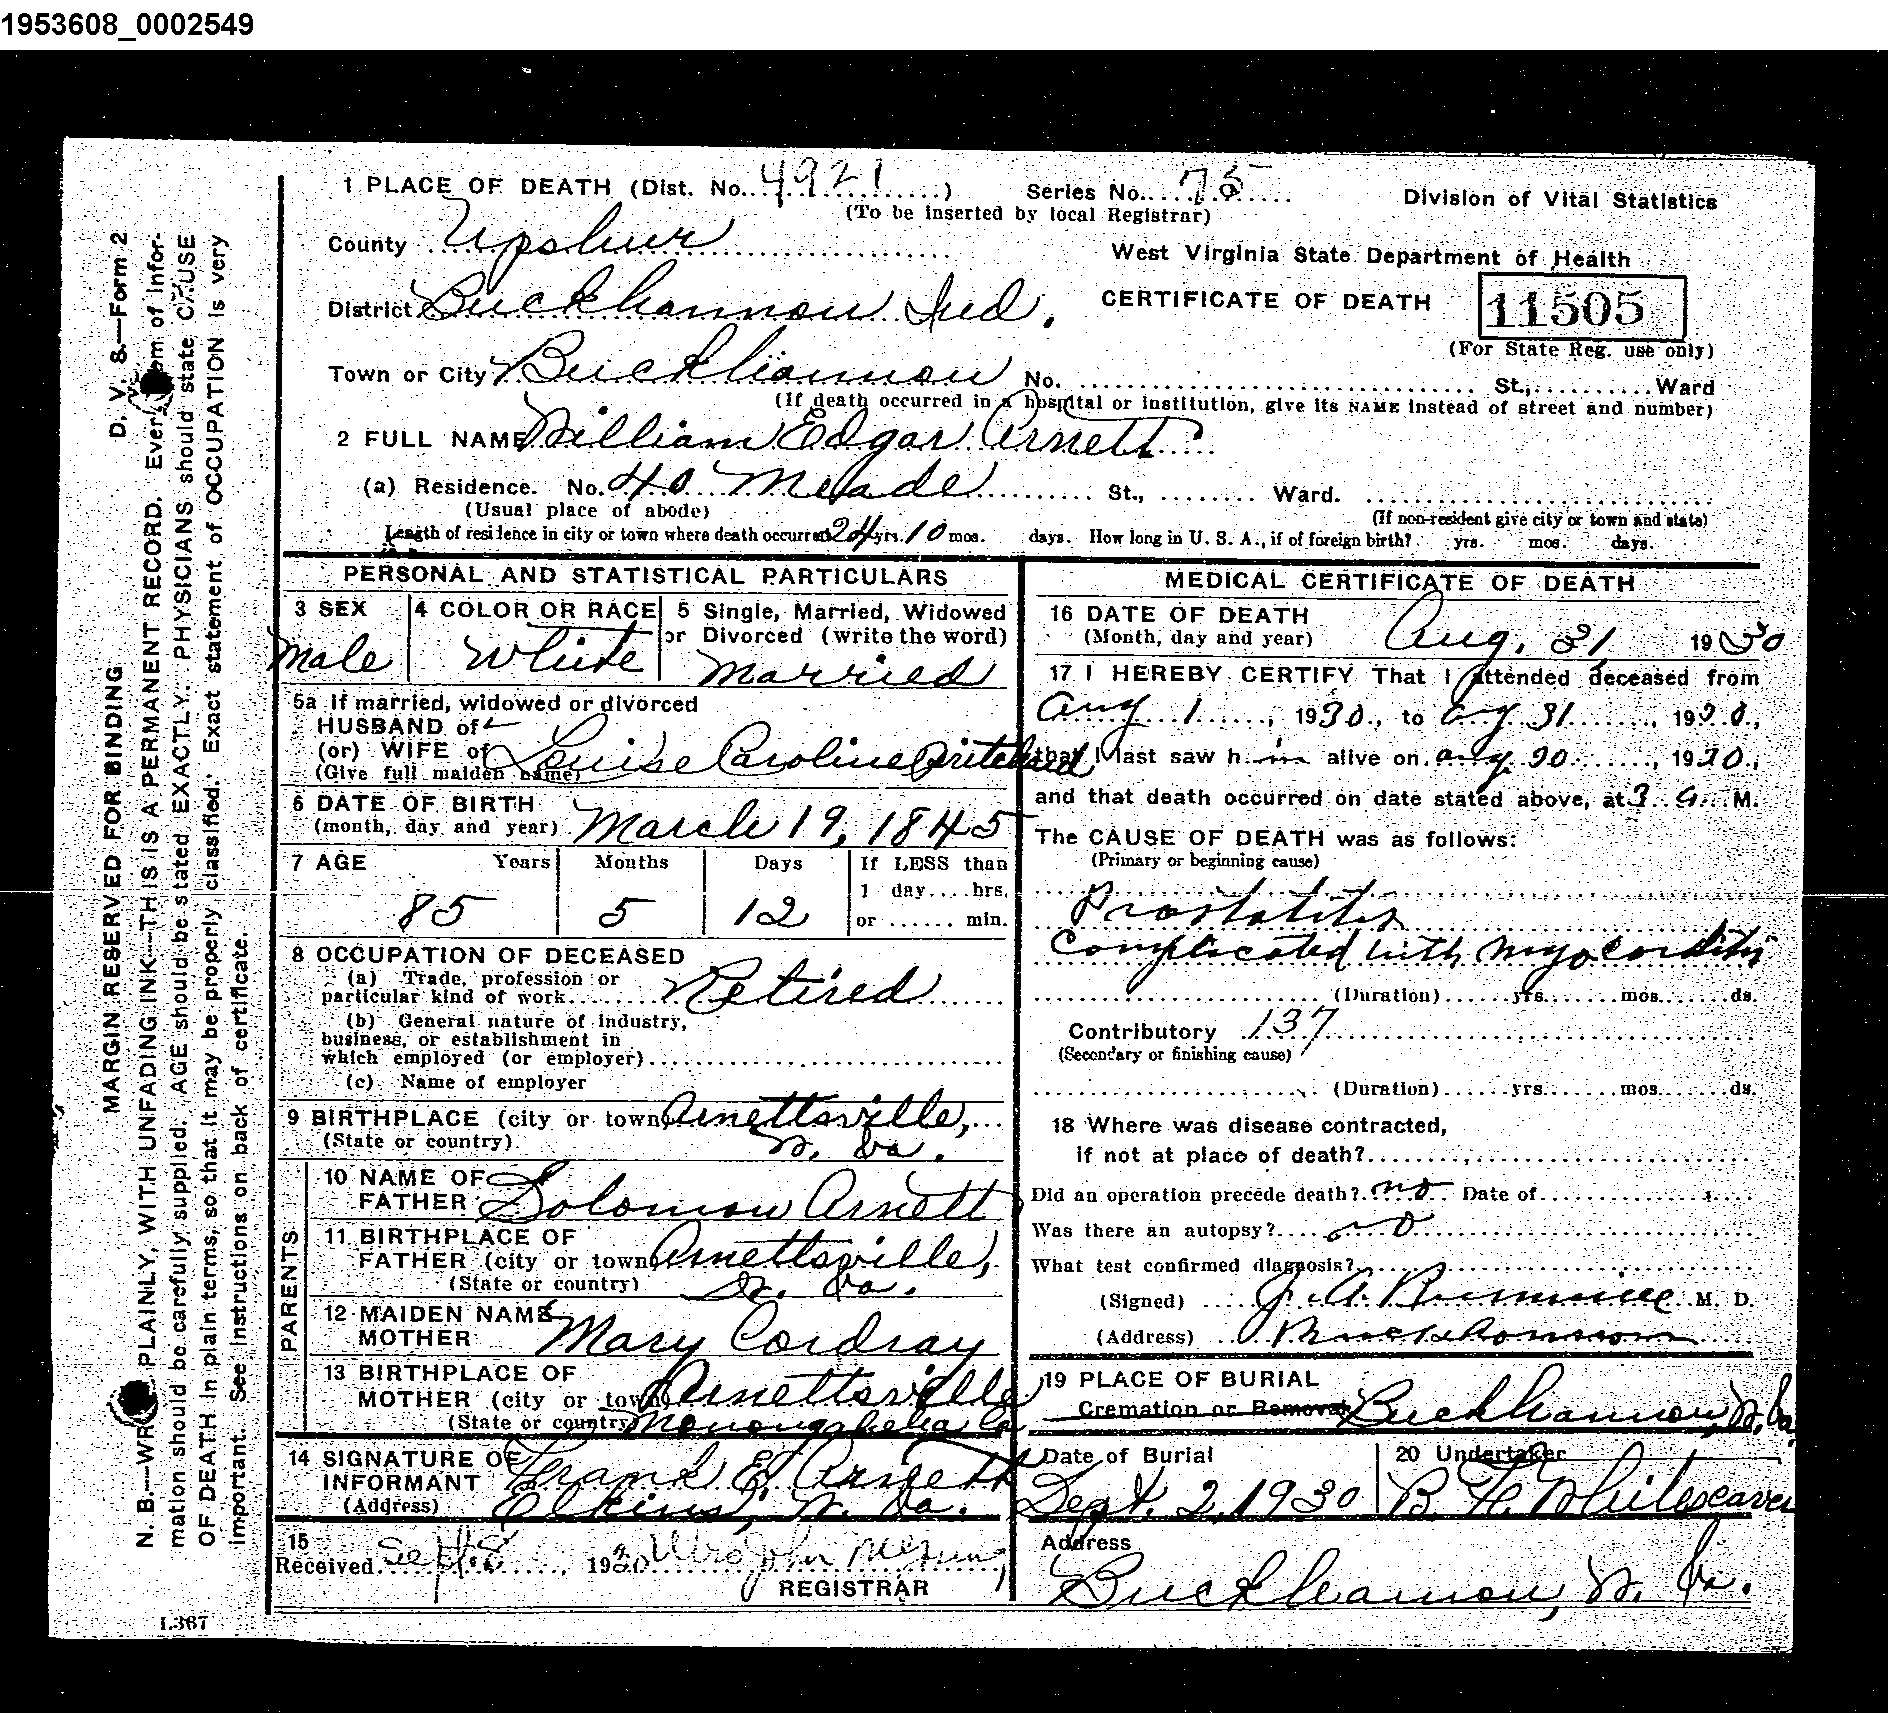 1953608_0002549
1 PLACE OF DEATH (Dist. No. 4921) Series No. 75 Division of Vital Statistics
(To be inserted by local Registrar)
County Upshur West Virginia State Department of Health
District Buckhannon Ind. CERTIFICATE OF DEATH 11505
(For State Reg. use only)
Town or City Buckhannon No. St., Ward
(If death occurred in a hospital or institution, give its NAME instead of street and number)
2 FULL NAME William Edgar Arnett
(a) Residence. No. 40 Meade St., Ward.
(Usual place of abode) (If non-resident give city or town and state)
Length of residence in city or town where death occurred 24 yrs. 10 mos. days. How long in U. S. A., if of foreign birth? yrs. mos. days.
PERSONAL AND STATISTICAL PARTICULARS
3 SEX 4 COLOR OR RACE 5 Single, Married, Widowed
or Divorced (write the word)
Male White Married
5a If married, widowed or divorced
HUSBAND of
(or) WIFE of Louise Caroline Pritchard
(Give full maiden name)
6 DATE OF BIRTH
(month, day and year) March 19, 1845
7 AGE Years Months Days If LESS than
1 day.... hrs.
85 5 12 or ...... min.
8 OCCUPATION OF DECEASED
(a) Trade, profession or
particular kind of work Retired
(b) General nature of industry,
business, or establishment in
which employed (or employer)
(c) Name of employer
9 BIRTHPLACE (city or town) Arnettsville,
(State or country) W. Va.
PARENTS
10 NAME OF
FATHER Solomon Arnett
11 BIRTHPLACE OF
FATHER (city or town) Arnettsville,
(State or country) W. Va.
12 MAIDEN NAME
MOTHER Mary Cordray
13 BIRTHPLACE OF
MOTHER (city or town) Arnettsville
(State or country) Monongahelia Co
14 SIGNATURE OF
INFORMANT Frank E. Arnett
(Address) Elkins, W. Va.
15
Received Sept 8, 1930 Mrs John
REGISTRAR
MEDICAL CERTIFICATE OF DEATH
16 DATE OF DEATH
(Month, day and year) Aug. 31 1930
17 I HEREBY CERTIFY That I attended deceased from
Aug 1, 1930, to Aug 31, 1930,
that I last saw h im alive on Aug. 30, 1930,
and that death occurred on date stated above, at 3 a M.
The CAUSE OF DEATH was as follows:
(Primary or beginning cause)
Prostatitis
Complicated with myocarditis
(Duration) yrs. mos. ds.
Contributory 137
(Secondary or finishing cause)
(Duration) yrs. mos. ds.
18 Where was disease contracted,
if not at place of death?
Did an operation precede death? no Date of
Was there an autopsy? no
What test confirmed diagnosis?
(Signed) J. A. M. D.
(Address) Buckhannon
19 PLACE OF BURIAL
Cremation or Removal Buckhannon, W. Va.
Date of Burial 20 Undertaker
Sept. 2, 1930 B. F. Whitescarver
Address
Buckhannon, W. Va.
D. V. S.—Form 2
MARGIN RESERVED FOR BINDING
N. B.—WRITE PLAINLY, WITH UNFADING INK—THIS IS A PERMANENT RECORD. Every item of infor-
mation should be carefully supplied. AGE should be stated EXACTLY. PHYSICIANS should state CAUSE
OF DEATH in plain terms, so that it may be properly classified. Exact statement of OCCUPATION is very
important. See instructions on back of certificate.
L367